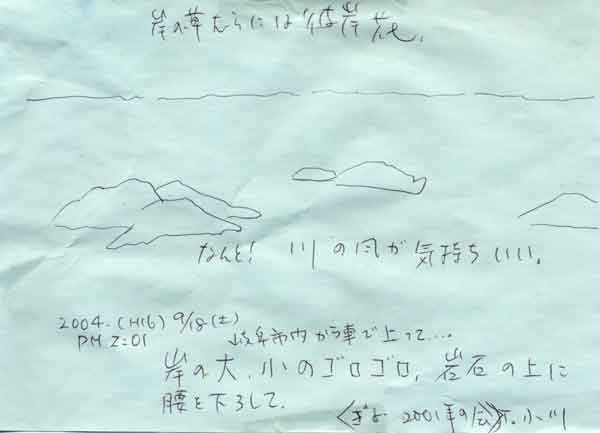 岸の草むらには彼岸花。
なんと! 川の風が気持ちいい。
2004.(H16) 9/18(土)
PM 2:01
岐阜市内から車で上って...
岸の大、小のゴロゴロ、岩石の上に
腰を下ろして。
2001年の会 T.小川